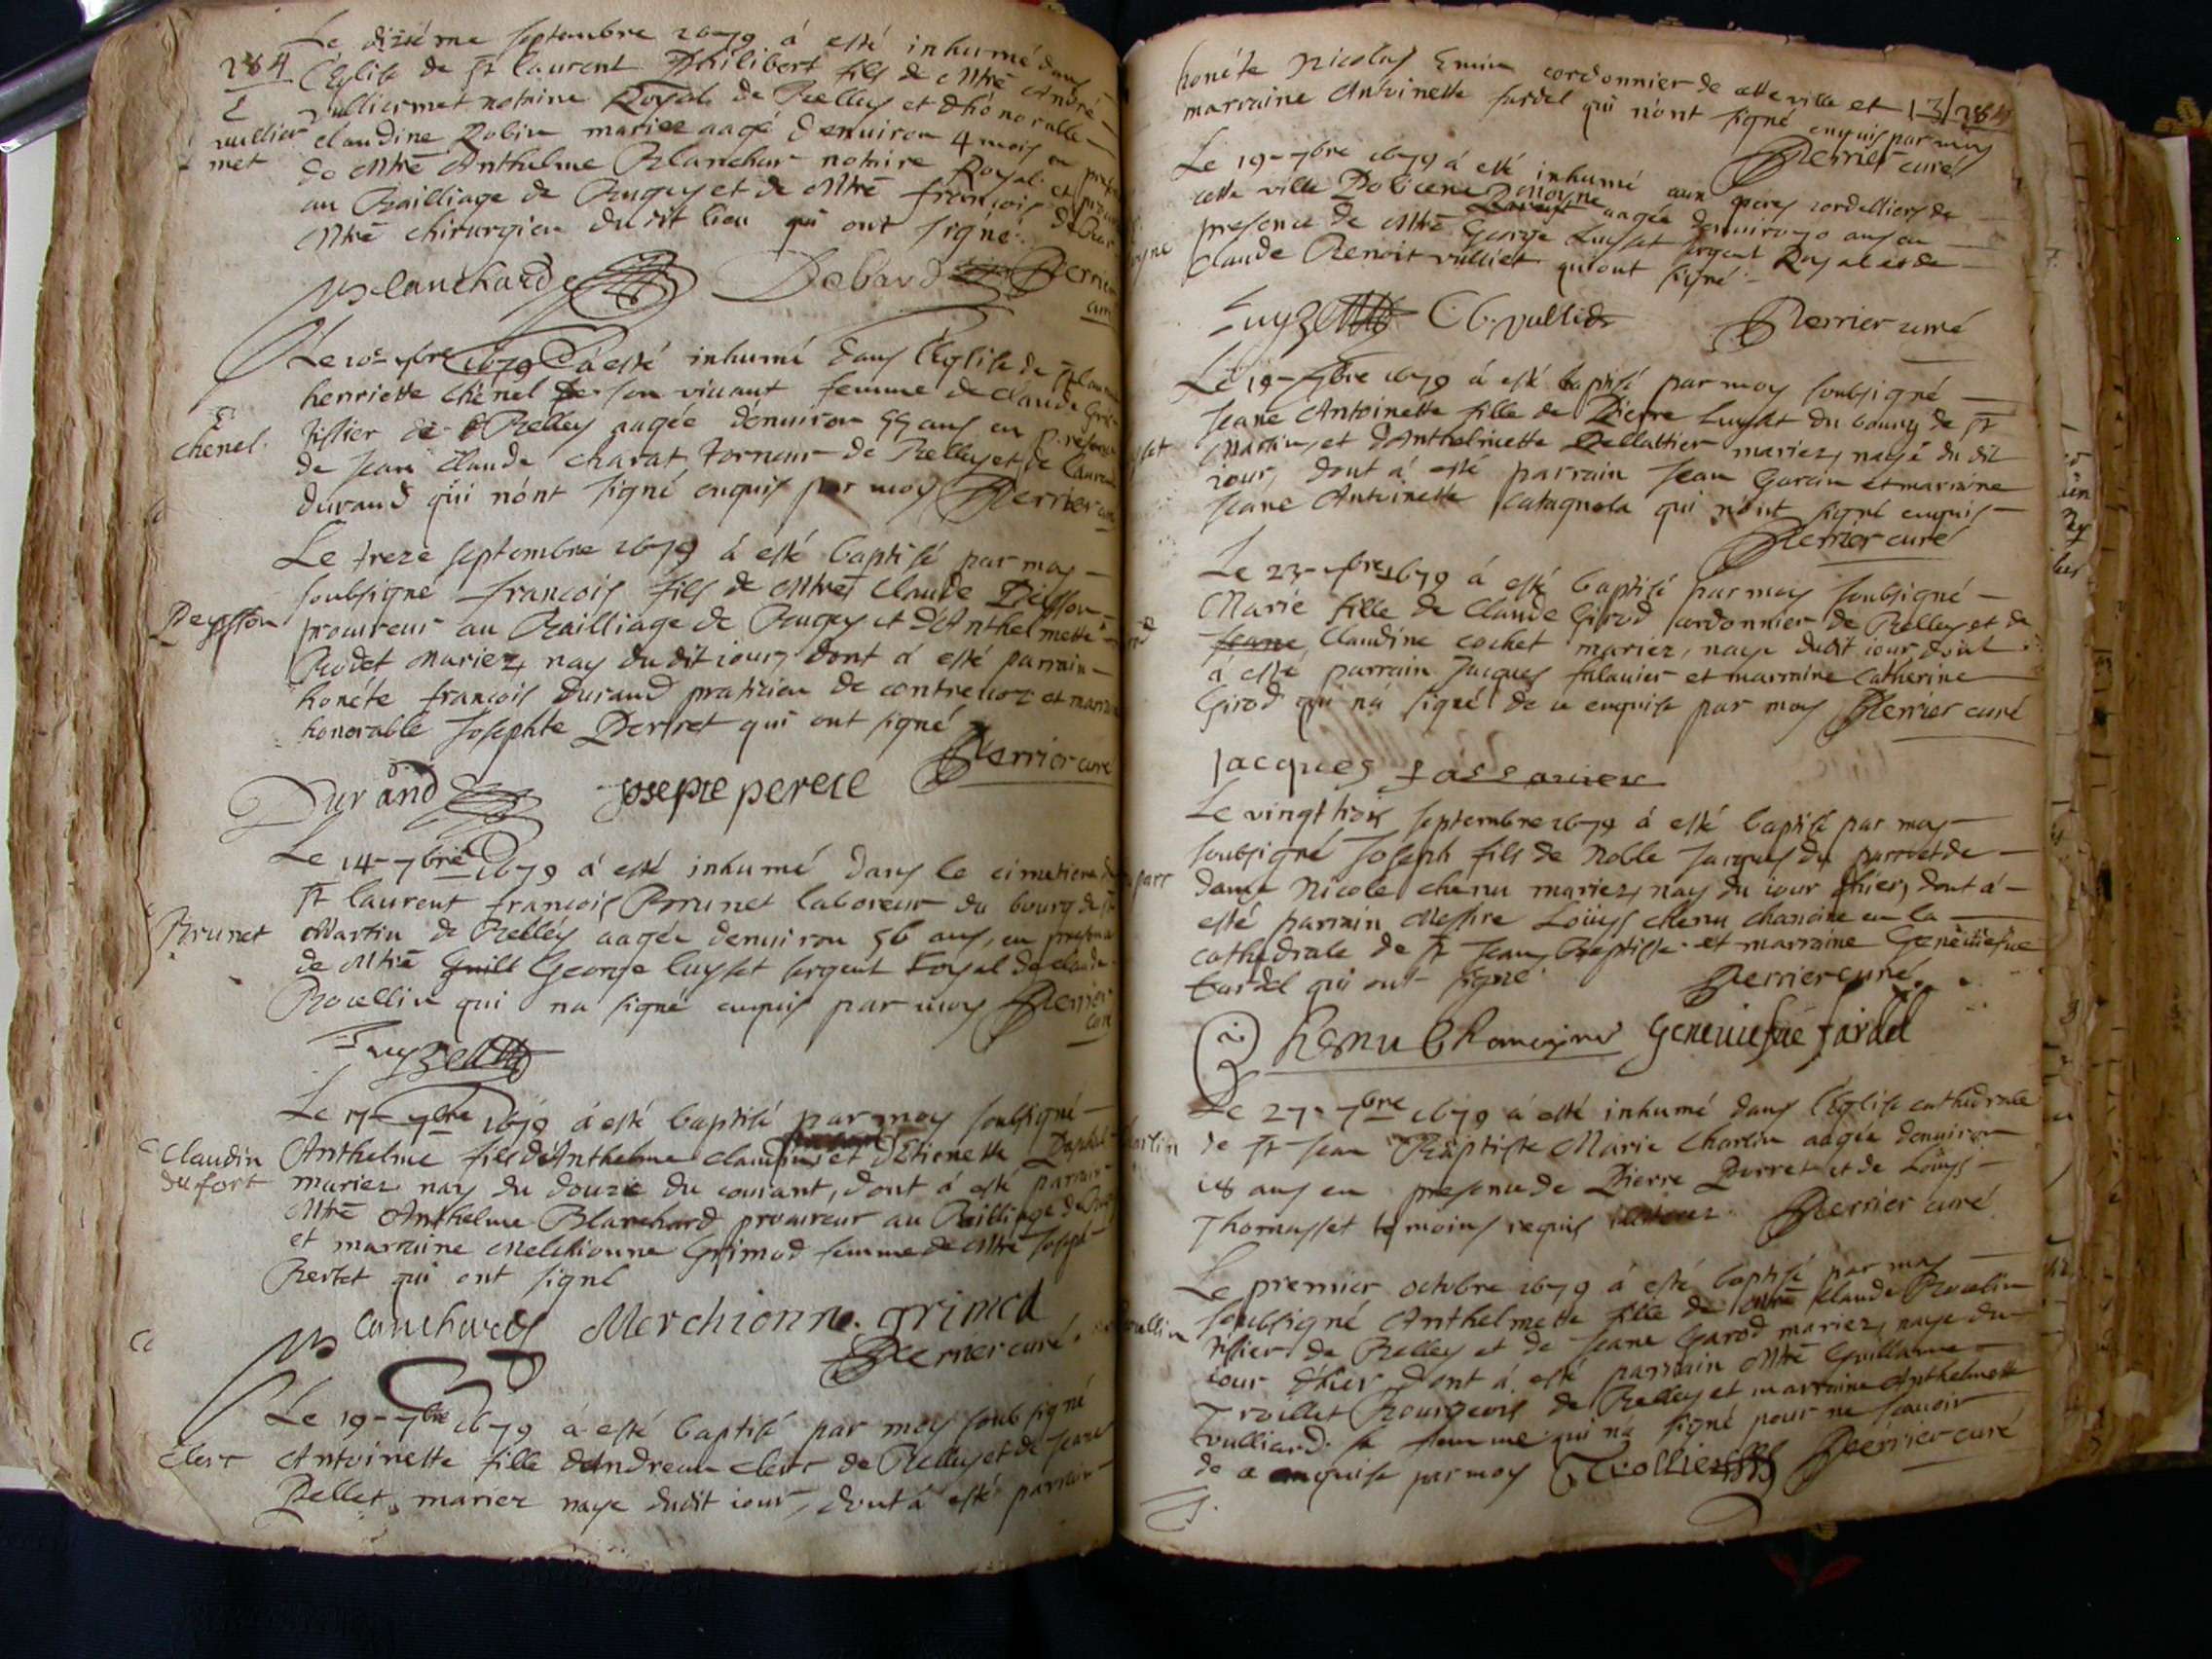 284
Le dixiéme septembre 1679 á esté inhumé dans
l'Eglise de st laurent Philibert fils de Mtré André
vulliermet notaire Royal de Belley et d'honorable
vullier
met
claudine Robin mariez aagé d'environ 4 mois en
de Mtré Anthelme Blanchar notaire Royal et
au Bailliage de Bugey et de Mtré francois
Mtré chirurgien dudit lieu qui ont signé
Blanchard Debard Perrier
curé
Le 10e 7bre 1679 á esté inhumé dans l'Eglise de st
henriette chenel de son vivant femme de claude
chenel
tissier de Belley aagée d'enuiron 55 ans en presence
de Jean claude charat tornour de Belley et de laurent
durand qui n'ont signé enquis par moy Perrier curé
Le treze septembre 1679 á esté baptisé par moy
soubsigné francois fils de Mtré claude Peisson
Peysson
procureur au Bailliage de Bugey et d'Anthelmette
Rodet mariez, nay du dit iour, dont á esté parrain
honéte francois durand praticien de contreuoz et marraine
honorable Josephte Pertret qui ont signé
Perrier curé
Durand Josepte perete
Le 14 7bre 1679 á esté inhumé dans le cimetiere de
st laurent francois Brunet laboreur du bourg de st
Brunet
Martin de Belley aagée denuiron 56 ans, en presence
de Mtré Guill George luyset sergent Royal de claude
Rouellin qui na signé enquis par moy Perrier
curé
Luyzet
Le 15 7bre 1679 á esté baptisé par moy soubsigné
claudin
dufort
Anthelme fils d'Anthelme claudin et d'Etienette
mariez nay du douze du courant, dont á esté parrain
Mtré Anthelme Blanchard procureur au Bailliage de
et marraine Melchionne Grimod femme de Mtré Joseph
Bertet qui ont signé
Blanchard Merchionne grimod
Perrier curé
Le 19 7bre 1679 á esté baptisé par moy soubsigné
clerc
Antoinette fille d'Andreau clerc de Belley et de Jeane
Pellet mariez naye dudit iour, dont á esté parrain
honéte Nicolas cordonnier de cette ville et
marraine Antoinette fardel qui n'ont signé enquis par moy
Perrier curé
Le 19 7bre 1679 á esté inhumé aux peres cordelliers de
cette ville Polixene aagée denuiron 70 ans en
presence de Mtré George Luyset sergent Royal et de
claude Benoit vulliet qui ont signé
Luyzet C b. vulliet Perrier curé
Le 19 7bre 1679 á esté baptisé par moy soubsigné
Jeane Antoinette fille de Pierre Luyset du bourg de st
Martin, et d'Anthelmette Pellattier mariez, nayé du dit
iour, dont á esté parrain Jean Garin et marraine
Jeane Antoinette catagnola qui n'ont signé enquis
Perrier curé
Le 23 7bre 1679 á esté baptisé par moy soubsigné
Marie fille de claude Girod cordonnier de Belley et de
Jeane claudine cochet mariez, naye dudit iour, dont
á esté parrain Jacques falauier et marraine catherine
Girod qui ná signé de ce enquise par moy Perrier curé
Jacques
Le vingt trois septembre 1679 á esté baptisé par moy
soubsigné Joseph fils de Noble Jacques du parc et de
dame Nicole chenu mariez, nay du iour d'hier, dont á
esté parrain Messire Loüys chenu chanoine en la
cathedrale de st Jean Baptiste et marraine Geneuiefue
fardel qui ont signé
Perrier curé
chenu chanoyne Geneuiefue fardel
Le 27 7bre 1679 á esté inhumé dans l'Eglise cathedrale
de st Jean Baptiste Marie charlin aagée denuiron
18 ans en presence de Pierre Perret et de Loüys
Thomasset témoins requis Perrier curé
Le premier octobre 1679 á esté baptisé par moy
soubsigné Anthelmette fille de claude Rouelin
tissier de Belley et de Jeane Garod mariez, naye du
iour d'hier, dont á esté parrain Mtré Guillaume
Trolliet Bourgeois de Belley et marraine Anthelmette
vulliard sa femme qui ná signé pour ne scauoir
de ce enquise par moy Trolliet Perrier curé